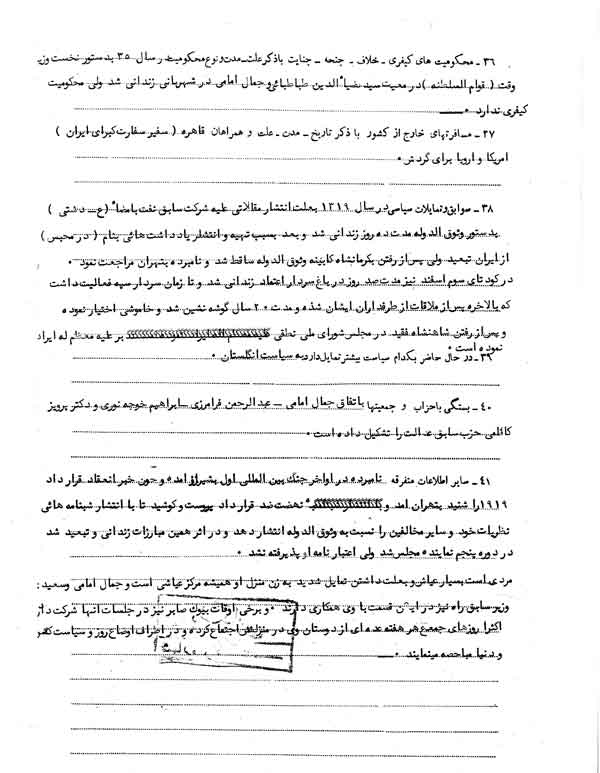 ۳۶ ـ محکومیت های کیفری ـ خلاف ـ جنحه ـ جنایت با ذکر علت ـ مدت و نوع محکومیت در سال ۳۵ بدستور نخست وزیر
وقت ( قوام السلطنه ) در معیت سید ضیاء الدین طباطبائی و جمال امامی در شهربانی زندانی شد ولی محکومیت
کیفری ندارد ۰
۳۷ ـ مسافرتهای خارج از کشور با ذکر تاریخ ـ مدت ـ علت و همراهان قاهره ( سفیر سفارت کبرای ایران )
امریکا و اروپا برای گردش ۰
۳۸ ـ سوابق و تمایلات سیاسی در سال ۱۳۱۹ بعلت انتشار مقالاتی علیه شرکت سابق نفت با مضاء ( ع ـ دشتی )
بدستور وثوق الدوله مدت ده روز زندانی شد و بعد بسبب تهیه و انتشار یادداشت هائی بنام ( در محبس )
از ایران تبعید ولی پس از رفتن بکرمانشاه کابینه وثوق الدوله ساقط شد و نامبرده بتهران مراجعت نمود ۰
در کودتای سوم اسفند نیز مدت صد روز در باغ سردار اعتماد زندانی شد و تا زمان سردار سپه فعالیت داشت
که بالاخره پس از ملاقات از طرفداران ایشان شده و مدت ۲۰ سال گوشه نشین شد و خاموشی اختیار نموده
و پس از رفتن شاهنشاه فقید در مجلس شورای ملی نطقی بر علیه معظم له ایراد
نموده است ۰
۳۹ ـ در حال حاضر بکدام سیاست بیشتر تمایل دارد به سیاست انگلستان ۰
۴۰ ـ بستگی باحزاب و جمعیتها با تفاق جمال امامی ـ عبدالرحمن فرامرزی ـ ابراهیم خوجه نوری و دکتر پرویز
کاظمی حزب سابق عدالت را تشکیل داده است ۰
۴۱ ـ سایر اطلاعات متفرقه نامبرده در اواخر جنگ بین المللی اول بشیراز امده و چون خبر انعقاد قرار داد
۱۹۱۹ را شنید بتهران امد و به نهضت ضد قرار داد پیوست و کوشید تا با انتشار شبنامه هائی
نظریات خود و سایر مخالفین را نسبت به وثوق الدوله انتشار دهد و در اثر همین مبارزات زندانی و تبعید شد
در دوره پنجم نماینده مجلس شد ولی اعتبار نامه او پذیرفته نشد ۰
مردی است بسیار عیاش و بعلت داشتن تمایل شدید به زن منزل او همیشه مرکز عیاشی است و جمال امامی و سعید
وزیر سابق راه نیز در این قسمت با وی همکاری دارند ۰ و برخی اوقات بیوک صابر نیز در جلسات انها شرکت دارد
اکثرا روزهای جمعه هر هفته عده ای از دوستان وی در منزلش اجتماع کرده و در اطراف اوضاع روز و سیاست کشور
و دنیا مباحثه مینمایند ۰